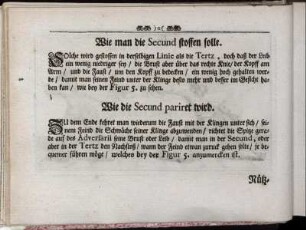 Wie man die Secund stossen solle.
Solche wird gestossen in derselbigen Linie als die Tertz, doch daß der Leib
ein wenig niedriger sey / die Brust aber über das rechte Knie / der Kopff am
Arm / und die Faust / um den Kopff zu bedecken / ein wenig hoch gehalten werde /
damit man seinen Feind unter der Klinge desto mehr und besser im Gesicht haben
kan / wie bey der Figur 5. zu sehen.
Wie die Secund pariret wird.
Zu dem Ende kehret man wiederum die Faust mit der Klingen unter sich /
seinem Feind die Schwäche seiner Klinge abzuwenden / richtet die Spitze gerade
auf des Adversarii seine Brust oder Leib / damit man in der Secund, oder
aber in der Tertz den Nachstoß / wann der Feind etwan zuruck gehen solte / je
bequemer führen möge / welches bey der Figur 5. anzumercken ist.
Nütz-